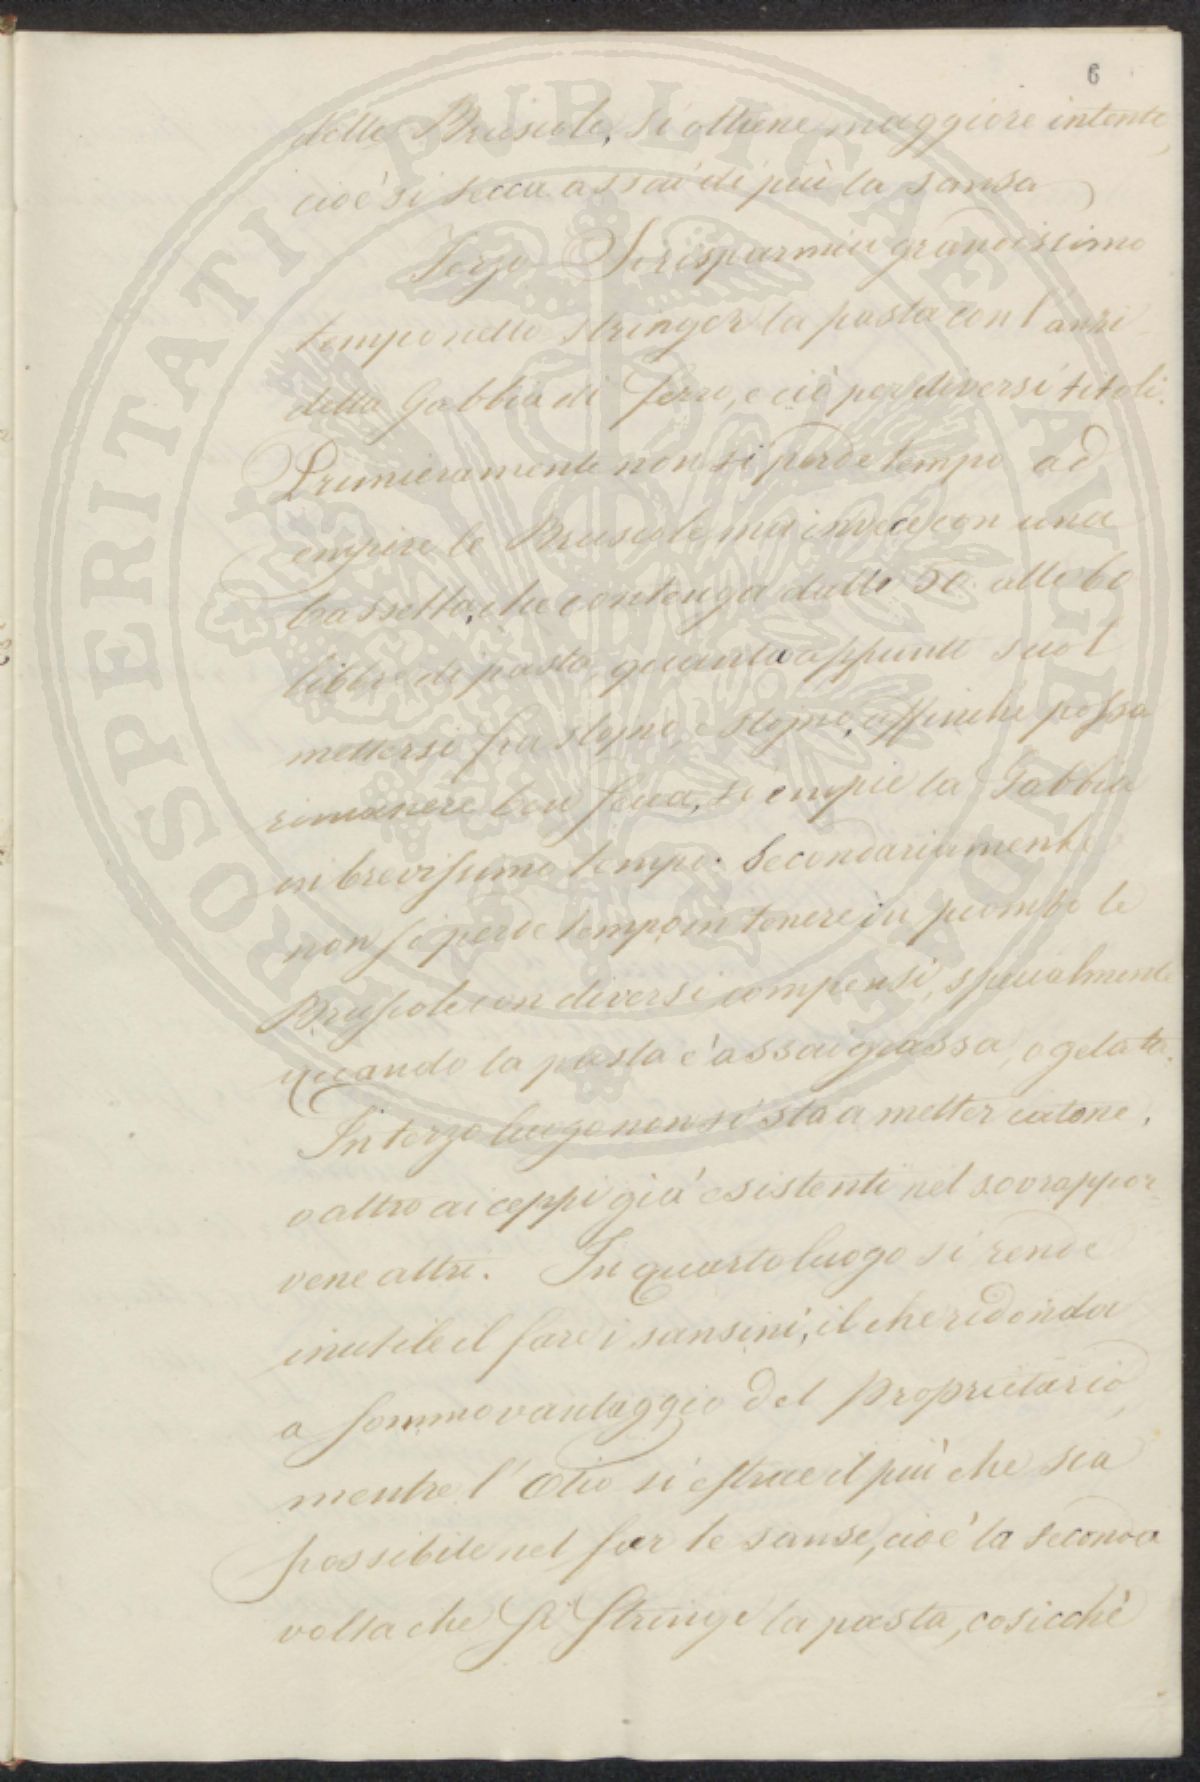 6
delle Bruscole, si ottiene maggiore intento,
cioè si secca assai di più la sansa
Terzo Si risparmia grandissimo
tempo nello stringer la pasta con l'anzi
detta Gabbia di ferro, e ciò per diversi titoli.
Primieramente non si perde tempo ad
empire le Bruscole, ma invece con una
Cassetta, che contenga dalle 50. alle 60
libbre di pasta, quanta appunto suol
mettersi fra stojno, e stojno, affinché possa
rimanere ben ferma, si empie la Gabbia
in brevissimo tempo. Secondariamente
non si perde tempo in tenere in piombo le
Bruscole con diversi compensi, specialmente
quando la pasta è assai grassa, o gelata.
In terzo luogo non si sta a metter catone,
o altro ai ceppi già esistenti nel sovrappor
vene altri. In quarto luogo si rende
inutile il fare i sansini, il che ridonda
a sommo vantaggio del Proprietario,
mentre l'Olio si estrae il più che sia
possibile nel far le sanse, cioè la seconda
volta che si stringe la pasta, cosicchè
PROSPERITATI PUBLICAE AUGENDAE